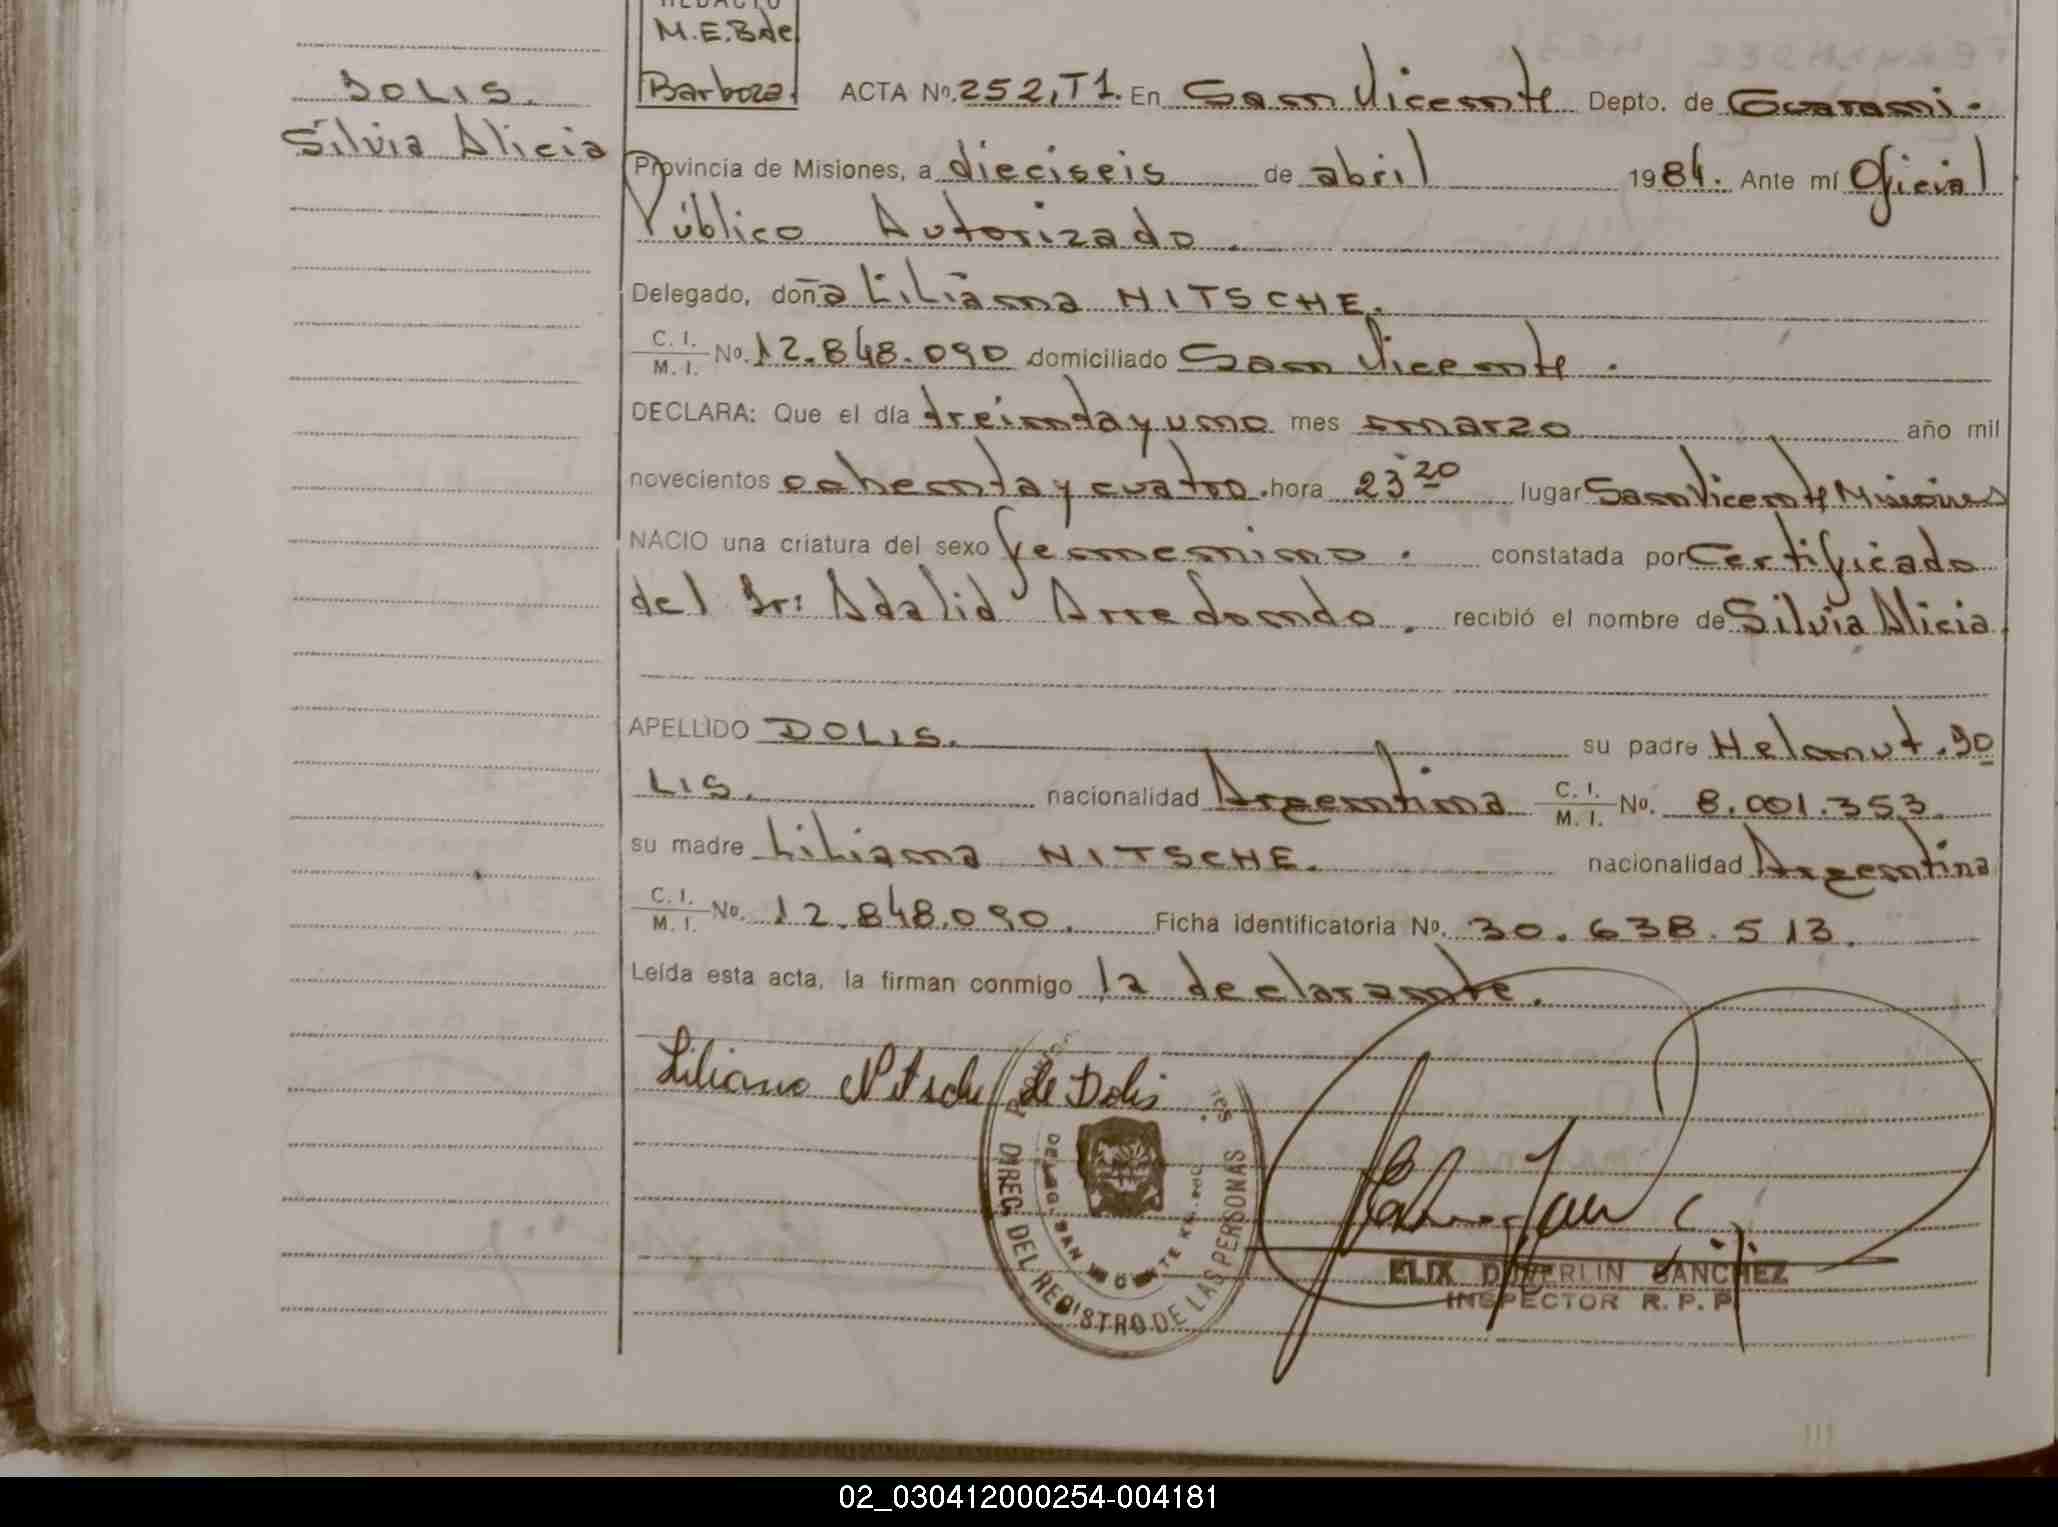 REDACTO
M.E.B de
Barboza.
DOLIS.
Silvia Alicia
ACTA Nº. 252, T1. En San Vicente Depto. de Guarani.
Provincia de Misiones, a dieciseis de abril 1984. Ante mí Oficial
Público Autorizado.
Delegado, doña Liliana NITSCHE.
C. I.
M. I. Nº. 12.848.090 domiciliado San Vicente.
DECLARA: Que el día treinta y uno mes marzo año mil
novecientos ochenta y cuatro. hora 23 20 lugar San Vicente Misiones
NACIO una criatura del sexo femenino. constatada por Certificado
del Dr: Adalid Arredondo. recibió el nombre de Silvia Alicia.
APELLIDO DOLIS. su padre Helmut. DO
LIS. nacionalidad Argentina C. I.
M. I. Nº. 8.001.353.
su madre Liliana NITSCHE. nacionalidad Argentina
C. I.
M. I. Nº. 12.848.090. Ficha identificatoria Nº. 30.638.513.
Leída esta acta, la firman conmigo la declarante.
Liliana Nitsche de Dolis
DIREC. DEL REGISTRO DE LAS PERSONAS
ELIX DUVERLIN SANCHEZ
INSPECTOR R. P. P.
02_030412000254-004181